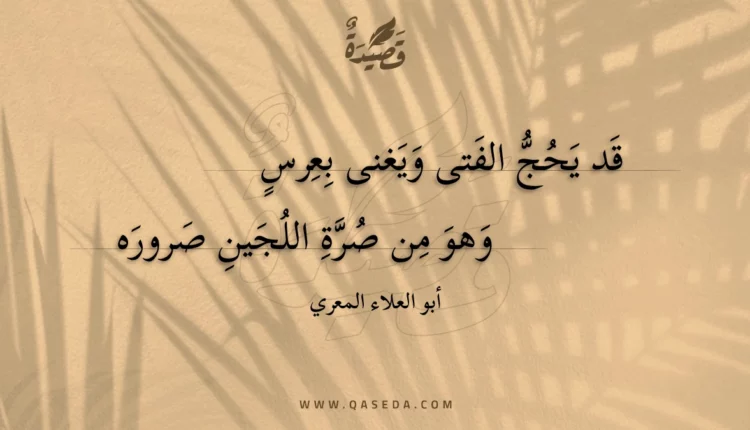 قَصِيْدَةٌ
قَد يَحُجُّ الفَتى وَيَغنى بِعِرسٍ
وَهوَ مِن صُرَّةِ اللُجَينِ صَرورَه
أبو العلاء المعري
WWW.QASEDA.COM